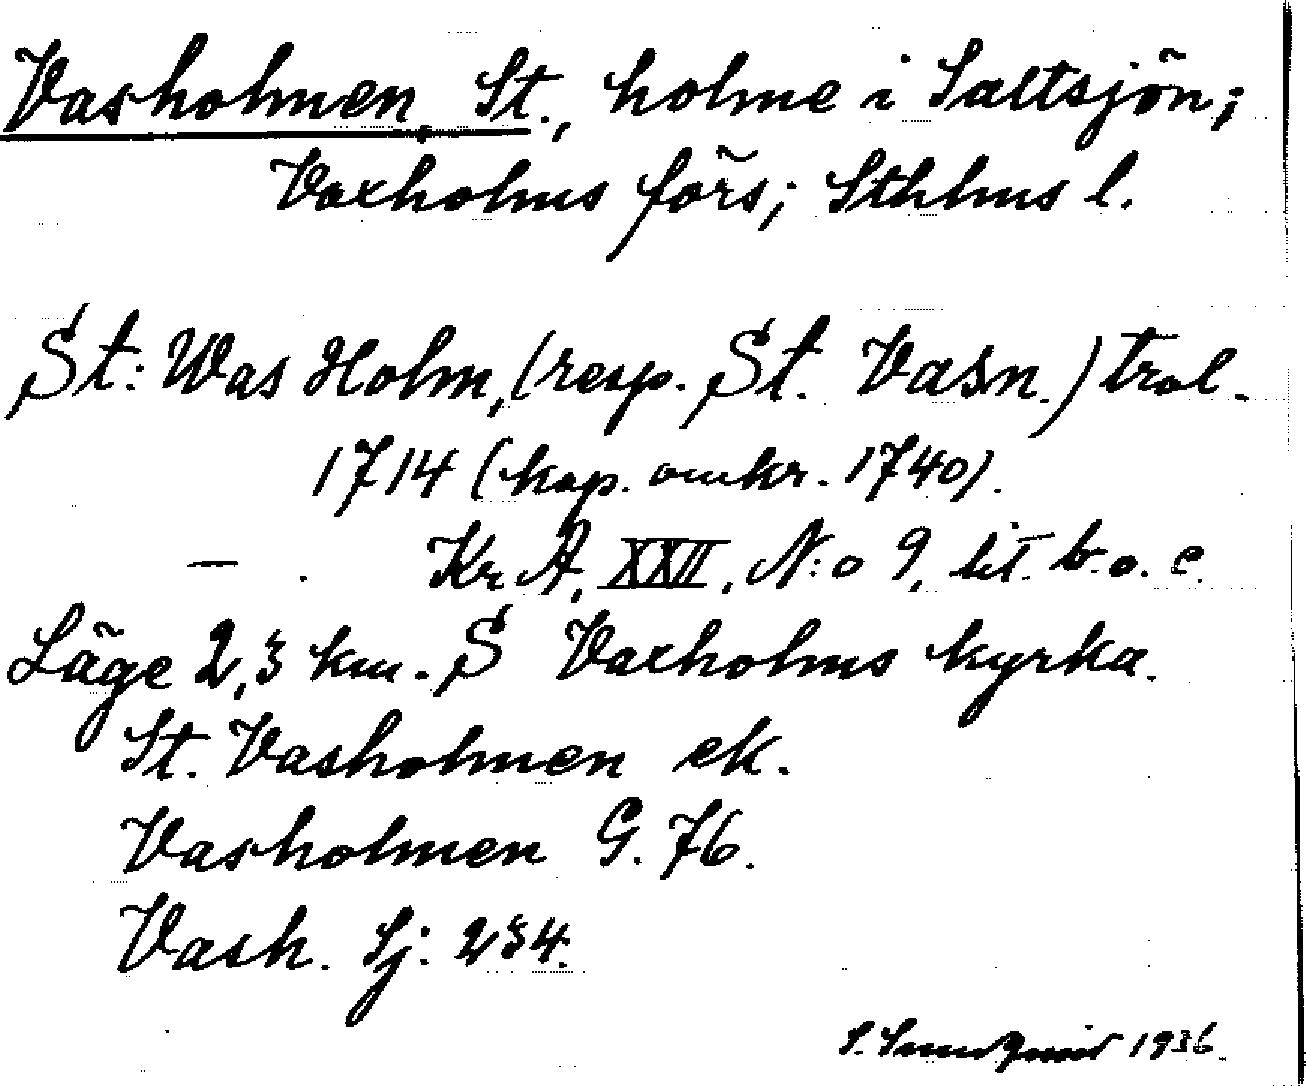 Vasholmen, St., holme i Saltsjön;
Vaxholms förs; Sthlms l.
St: Was Holm, (resp. St. Vasn.) trol.
1714 (kop. omkr. 1740).
— . Kr A, XXII, N:o 9, lit. b. o. c.
Läge 2,3 km. S Vaxholms kyrka.
St. Vasholmen ek.
Vasholmen G. 76.
Vash. Sj: 234.
S. 1936.